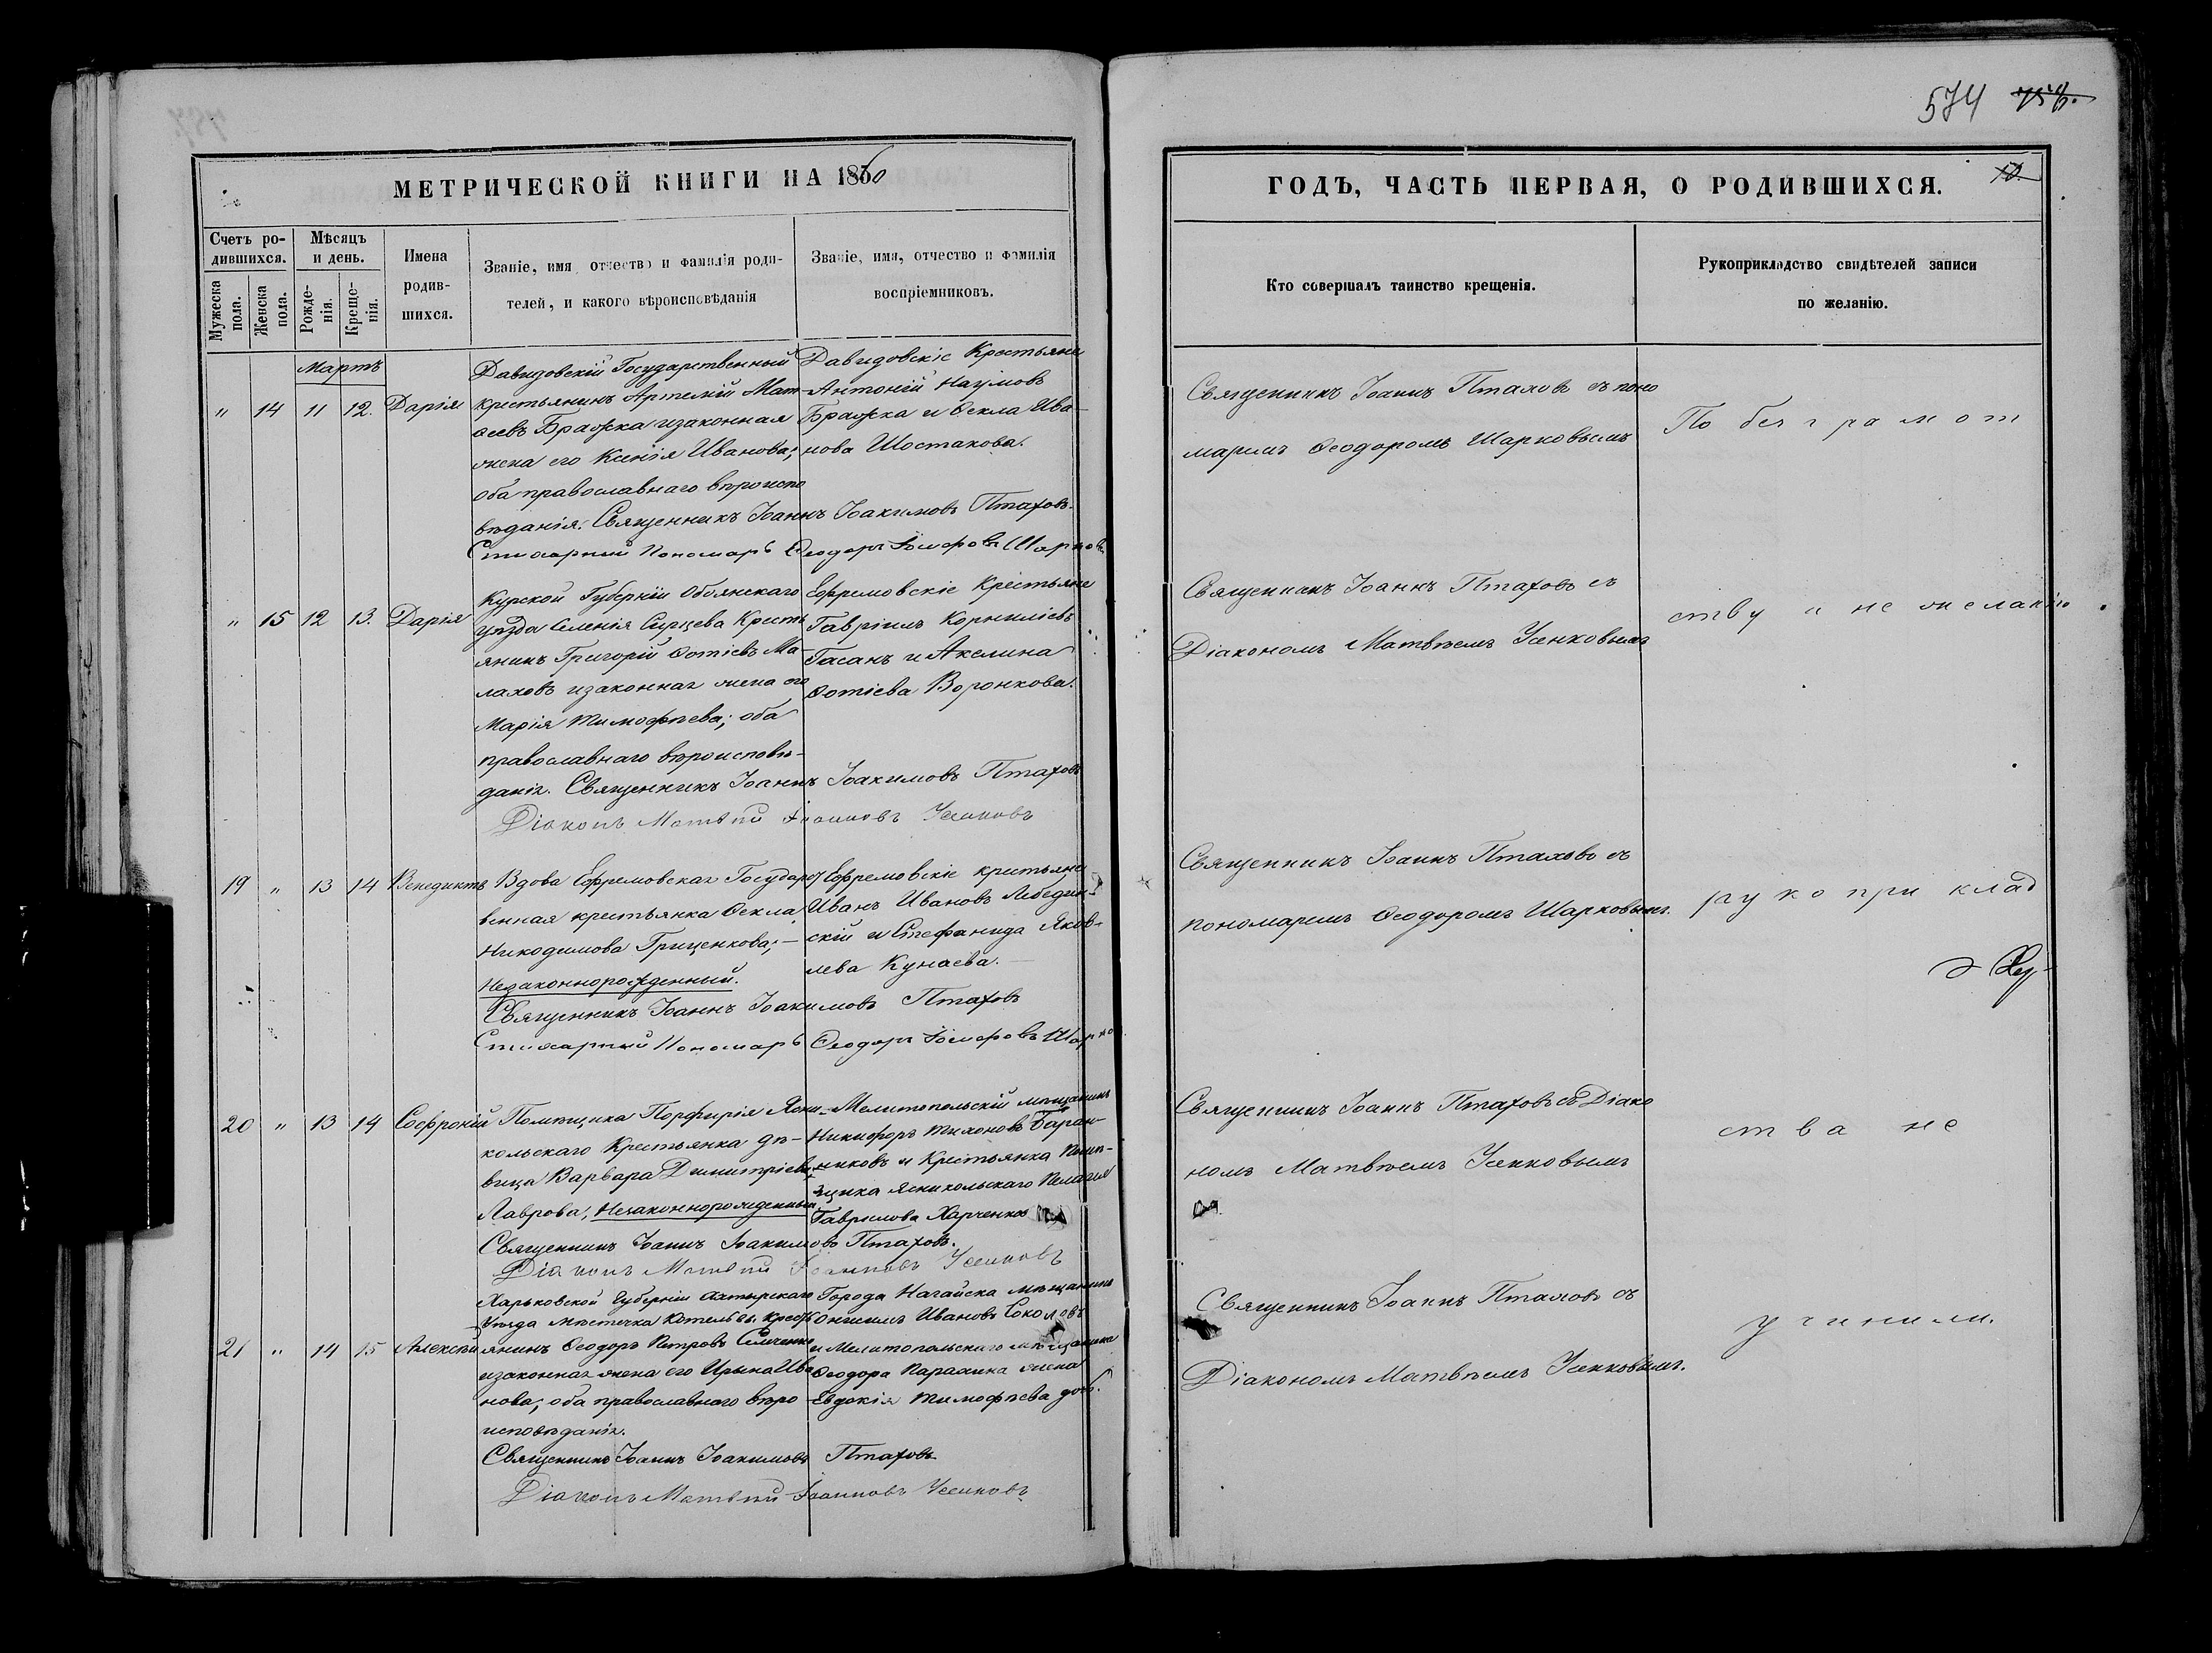 574 758.
МЕТРИЧЕСКОЙ КНИГИ НА 1860
Счетъ ро-
дившихся.
Мужеска
пола.
Женска
пола.
Мѣсяцъ
и день.
Рожде-
нія.
Креще-
нія.
Имена
родив-
шихся.
Званіе, имя, отчество и фамилія роди-
телей, и какого вѣроисповѣданія
Званіе, имя, отчество и фамилія
воспріемниковъ.
Мартъ
" 14 11 12. Дарія
Давидовскій Государственный
крестьянинъ Артемій Мат-
ѳеевъ Бражка изаконная
жена его Ксенія Иванова;
оба православнаго вѣроиспо
вѣданія. Священникъ Іоаннъ Іоакимовъ Птаховъ.
Стихарный Пономарь Ѳеодоръ Іосифовъ Шарковъ
Давидовскіе Крестьяне
Антоній Наумовъ
Бражка и Ѳекла Ива-
нова Шостакова.
" 15 12 13. Дарія
Курской Губерніи Обоянскаго
уѣзда Селенія Сырцева Кресть
янинъ Григорій Фотіевъ Ма-
лаховъ изаконная жена его
Марія Тимофѣева; оба
православнаго вѣроисповѣ-
данія. Священникъ Іоаннъ Іоакимовъ Птаховъ
Діаконъ Матвѣй Іоанновъ Усенковъ
Ефремовскіе Крестьяне
Гавріилъ Корниліевъ
Гасанъ и Акелина
Фотіева Воронкова.
19 " 13 14 Венедиктъ
Вдова Ефремовская Государст
венная крестьянка Ѳекла
Никодимова Гриценкова; —
Незаконнорожденный.
Священникъ Іоаннъ Іоакимовъ Птаховъ
Стихарный Пономарь Ѳеодоръ Іосифовъ Шарко
Ефремовскіе крестьяне
Иванъ Ивановъ Лебедин-
скій и Стефанида Яков-
лева Кунаева. —
20 " 13 14 Софроній
Помѣщика Порфирія Ясни-
кольскаго Крестьянка дѣ-
вица Варвара Димитріева
Лаврова, Незаконнорожденный
Священникъ Іоаннъ Іоакимовъ Птаховъ.
Діаконъ Матвѣй Іоанновъ Усенковъ
Мелитопольскій мѣщанинъ
Никифоръ Тихоновъ Баран-
никовъ и Крестьянка Помѣ-
щика Ясникольскаго Пелагія
Гаврилова Харченко
21 " 14 15 Алексѣй
Харьковской Губерніи Ахтырскаго
Уѣзда мѣстечка Котельвы Кресть
янинъ Ѳеодоръ Петровъ
изаконная жена его Ирына Ива
нова; оба православнаго вѣро
исповѣданія.
Священникъ Іоаннъ Іоакимовъ Птаховъ
Діаконъ Матвѣй Іоанновъ Усенковъ
Города Нагайска мѣщанинъ
Онисимъ Ивановъ Соколовъ
и Мелитопольскаго мѣщанина
Ѳеодора жена
Евдокія Тимофѣева дочь.
ГОДЪ, ЧАСТЬ ПЕРВАЯ, О РОДИВШИХСЯ.
10
Кто совершалъ таинство крещенія.
Рукоприкладство свидѣтелей записи
по желанію.
Священникъ Іоаннъ Птаховъ съ поно
маремъ Ѳеодоромъ Шарковымъ
По безграмот
Священникъ Іоаннъ Птаховъ съ
Діакономъ Матвѣемъ Усенковымъ
ству и не желанію
Священникъ Іоаннъ Птаховъ съ
пономаремъ Ѳеодоромъ Шарковымъ.
рукоприклад
Священникъ Іоаннъ Птаховъ съ Діако
номъ Матвѣемъ Усенковымъ
ства не
Священникъ Іоаннъ Птаховъ съ
Діакономъ Матвѣемъ Усенковымъ.
учинили.